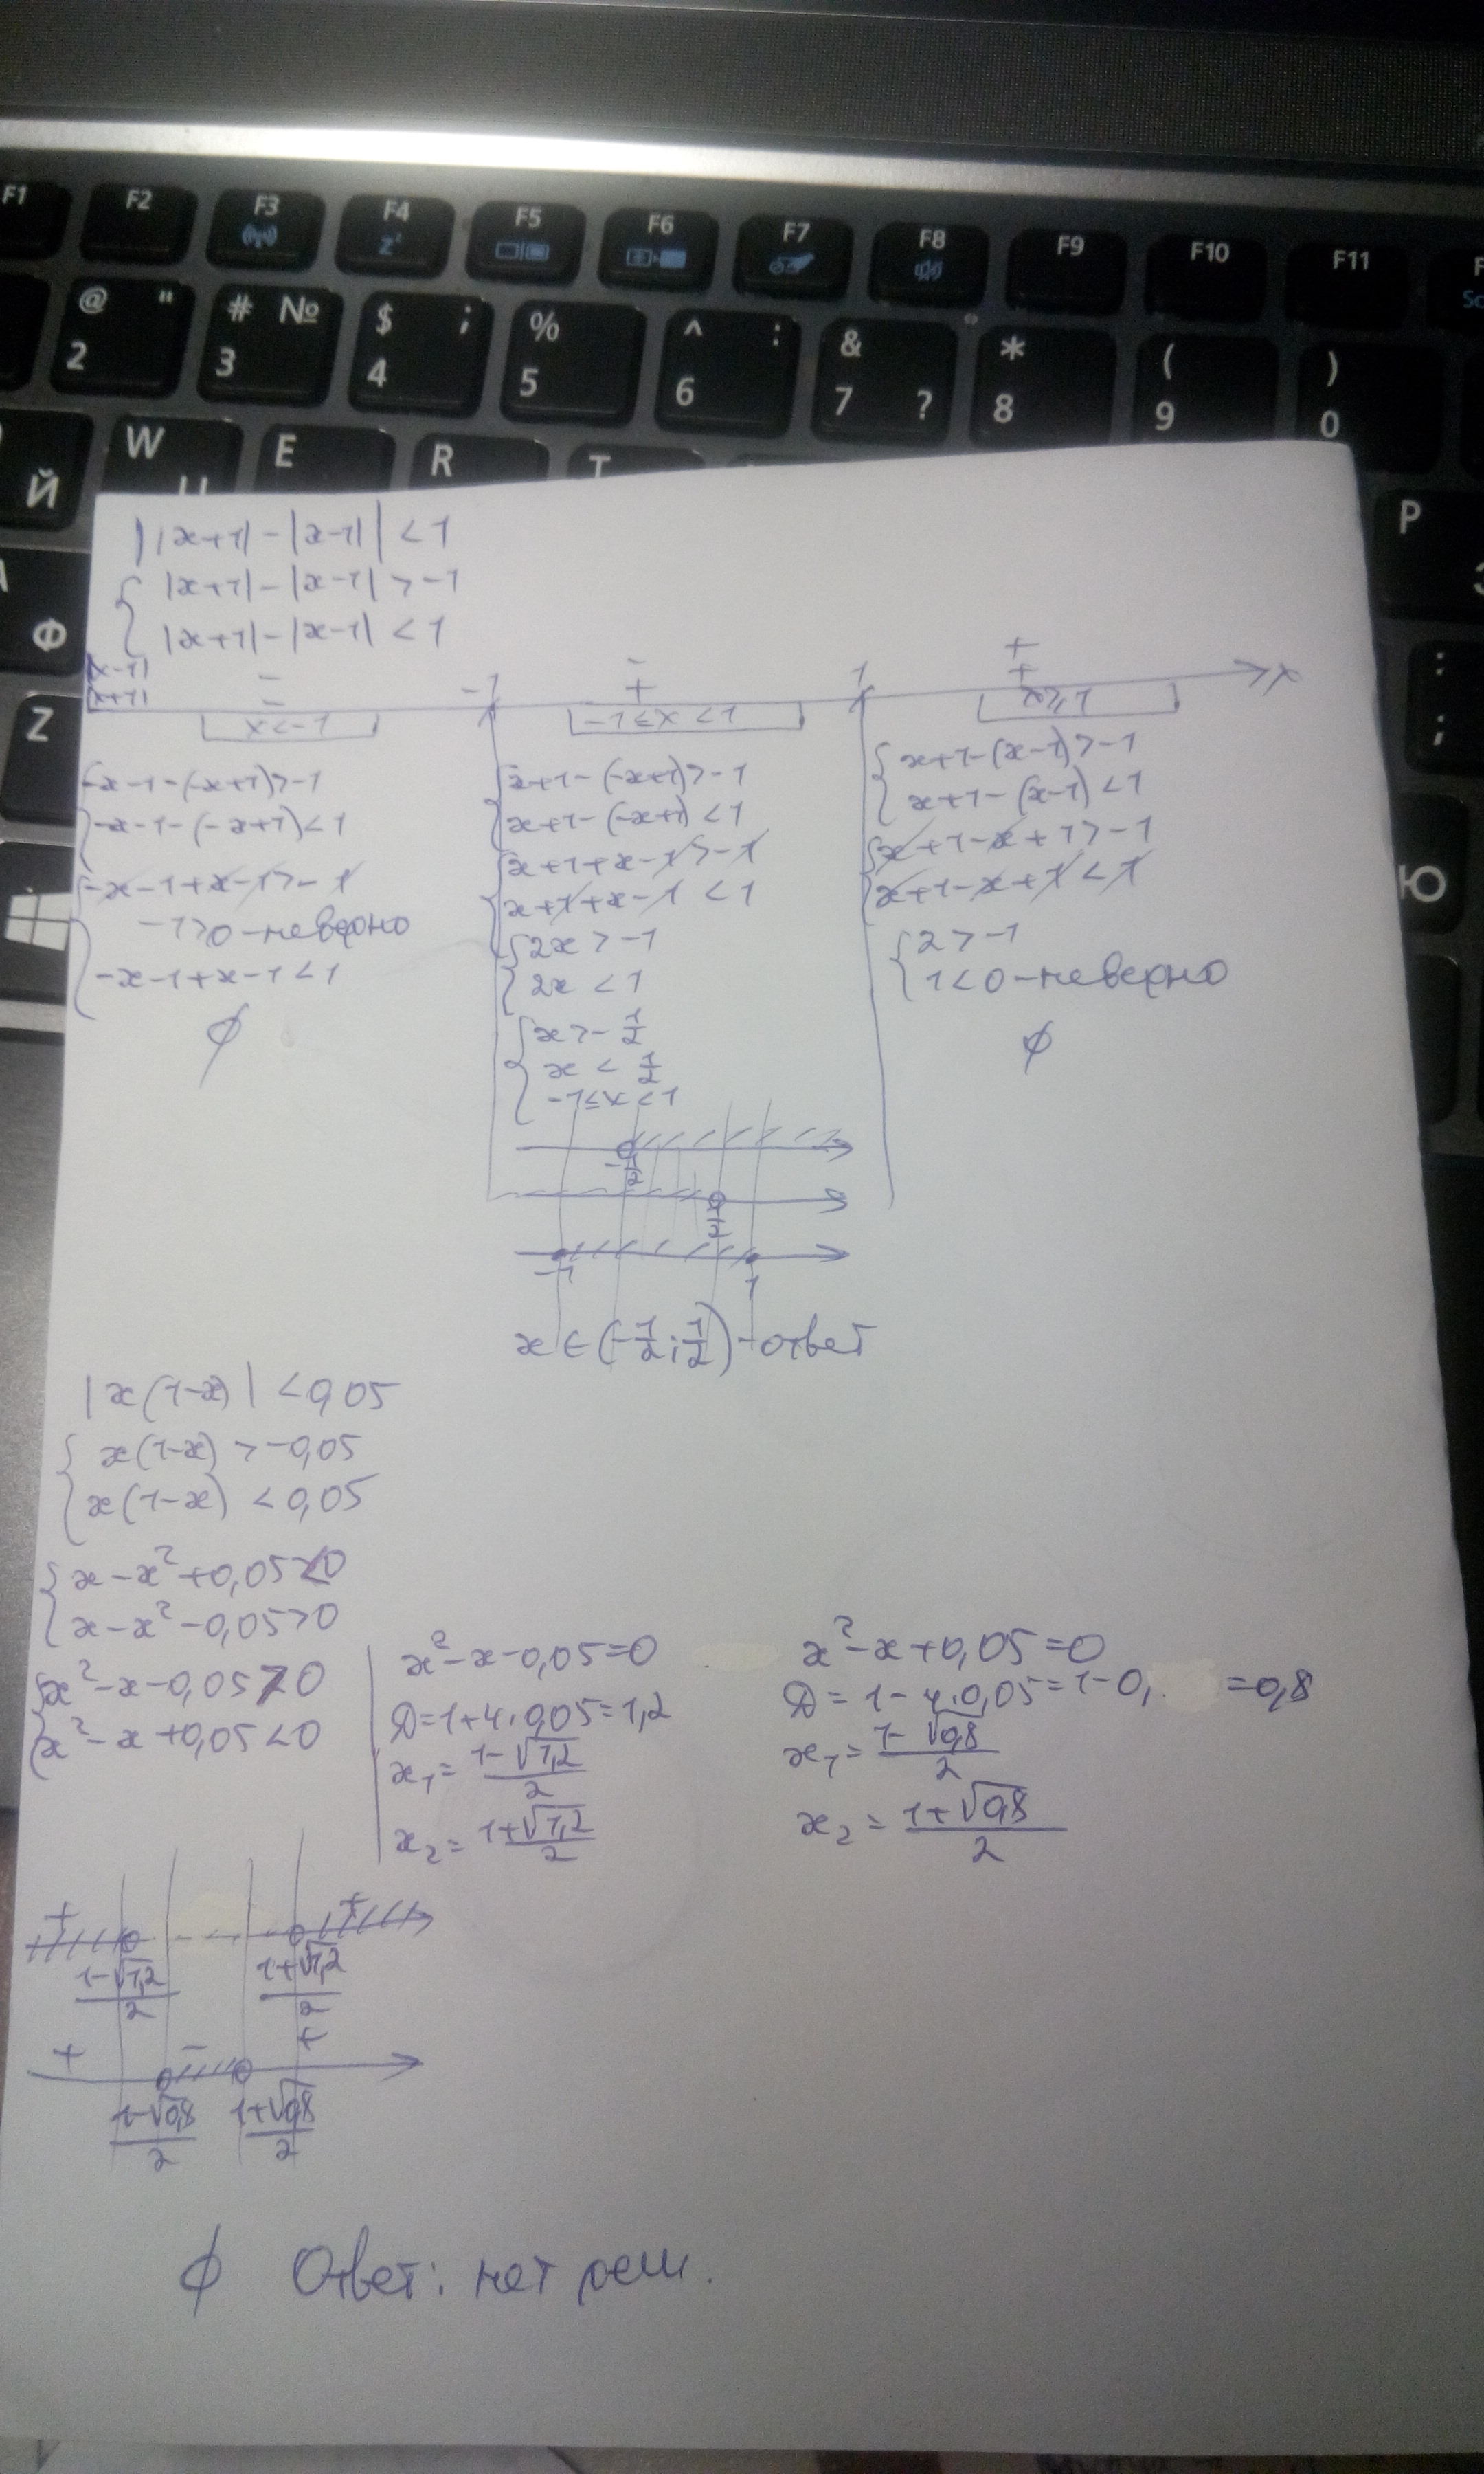 F1 F2 F3 F4 F5 F6 F7 F8 F9 F10 F11
Z^z
@ " # № $ ; % ^ : & * ( )
2 3 4 5 6 7 ? 8 9 0
W E R T
Й Р
Ф
Z : ;
Ю
||x+1|-|x-1|| < 1
{ |x+1|-|x-1| > -1
|x+1|-|x-1| < 1
|x-1| - - +
|x+1| - -1 + 1 + x
x<-1 -1≤x<1 x≥1
{ -x-1-(-x+1)>-1
-x-1-(-x+1)<1
{ -x-1+x-1>-1
-1>0 - неверно
-x-1+x-1<1
∅
{ x+1-(-x+1)>-1
x+1-(-x+1)<1
{ x+1+x-1>-1
x+1+x-1<1
{ 2x>-1
2x<1
{ x>-1/2
x<1/2
-1≤x<1
-1/2
1/2
-1 1
x∈(-1/2;1/2) - ответ
{ x+1-(x-1)>-1
x+1-(x-1)<1
{ x+1-x+1>-1
x+1-x+1<1
{ 2>-1
1<0 - неверно
∅
|x(1-x)| < 0,05
{ x(1-x) > -0,05
x(1-x) < 0,05
{ x-x²+0,05<0
x-x²-0,05>0
{ x²-x-0,05>0
x²-x+0,05<0
x²-x-0,05=0
D=1+4·0,05=1,2
x₁=(1-√1,2)/2
x₂=(1+√1,2)/2
x²-x+0,05=0
D=1-4·0,05=1-0, =0,8
x₁=(1-√0,8)/2
x₂=(1+√0,8)/2
+ - - +
(1-√1,2)/2 (1+√1,2)/2
+ - +
(1-√0,8)/2 (1+√0,8)/2
∅ Ответ: нет реш.